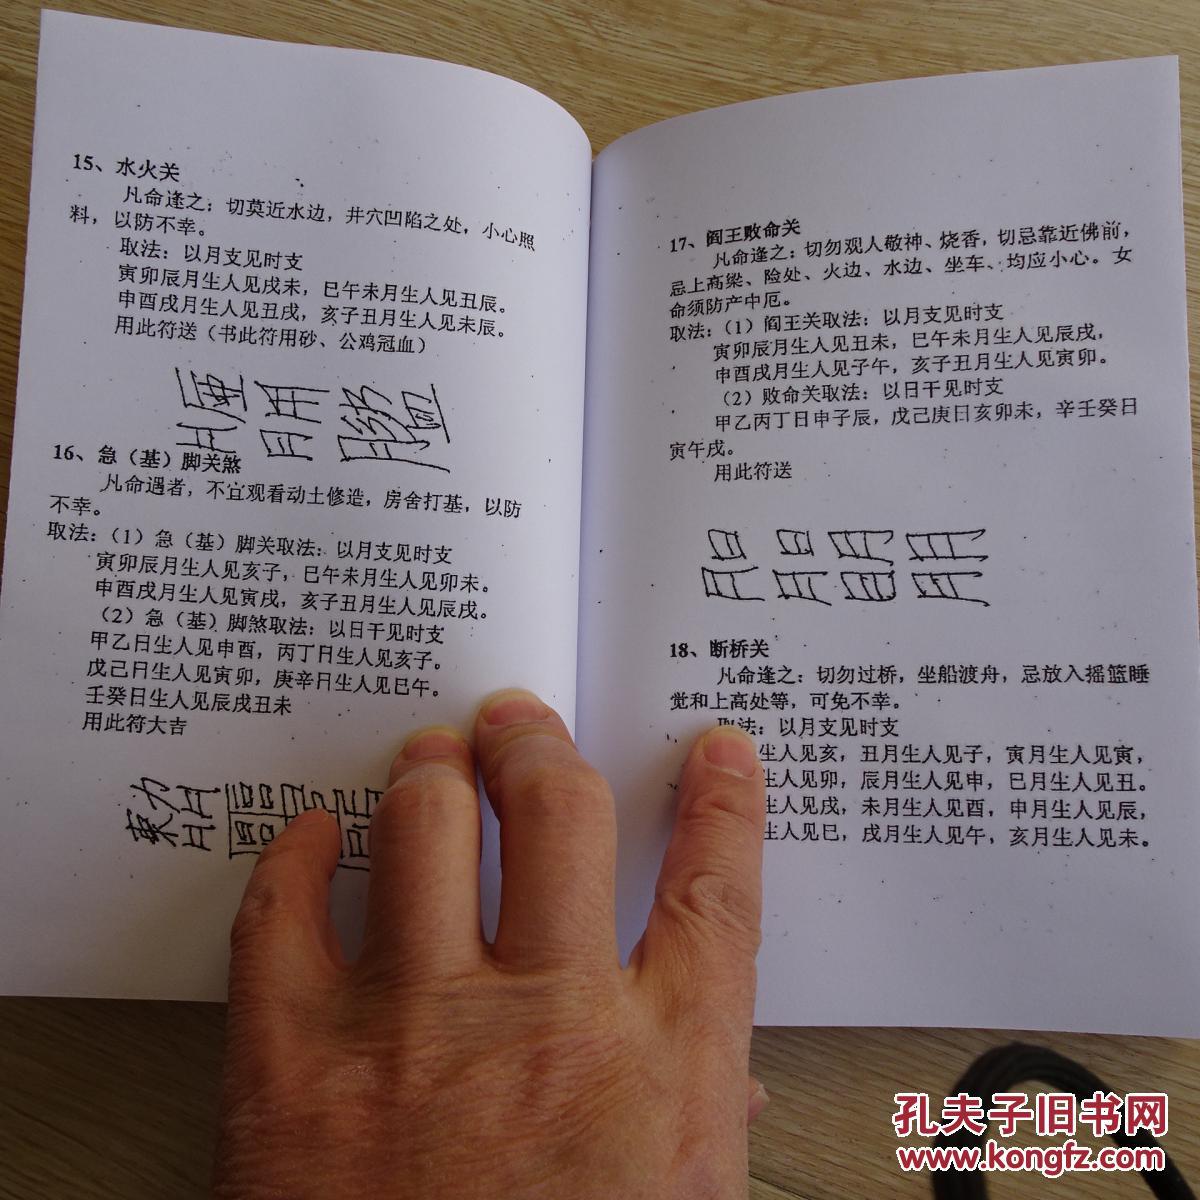 15、水火关
凡命逢之：切莫近水边，井穴凹陷之处，小心照
料，以防不幸。
取法：以月支见时支
寅卯辰月生人见戌未，巳午未月生人见丑辰。
申酉戌月生人见丑戌，亥子丑月生人见未辰。
用此符送（书此符用砂、公鸡冠血）
16、急（基）脚关煞
凡命遇者，不宜观看动土修造，房舍打基，以防
不幸。
取法：（1）急（基）脚关取法：以月支见时支
寅卯辰月生人见亥子，巳午未月生人见卯未。
申酉戌月生人见寅戌，亥子丑月生人见辰戌。
（2）急（基）脚煞取法：以日干见时支
甲乙日生人见申酉，丙丁日生人见亥子。
戊己日生人见寅卯，庚辛日生人见巳午。
壬癸日生人见辰戌丑未
用此符大吉
17、阎王败命关
凡命逢之：切勿观人敬神、烧香，切忌靠近佛前，
忌上高梁、险处、火边、水边、坐车、均应小心。女
命须防产中厄。
取法：（1）阎王关取法：以月支见时支
寅卯辰月生人见丑未，巳午未月生人见辰戌，
申酉戌月生人见子午，亥子丑月生人见寅卯。
（2）败命关取法：以日干见时支
甲乙丙丁日申子辰，戊己庚日亥卯未，辛壬癸日
寅午戌。
用此符送
18、断桥关
凡命逢之：切勿过桥，坐船渡舟，忌放入摇篮睡
觉和上高处等，可免不幸。
取法：以月支见时支
生人见亥，丑月生人见子，寅月生人见寅，
生人见卯，辰月生人见申，巳月生人见丑。
生人见戌，未月生人见酉，申月生人见辰，
生人见巳，戌月生人见午，亥月生人见未。
孔夫子旧书网
www.kongfz.com